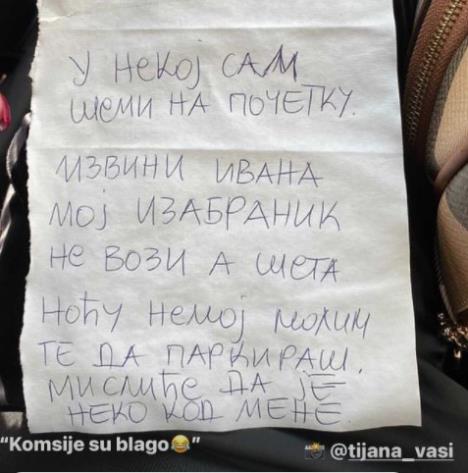 У НЕКОЈ САМ
ШЕМИ НА ПОЧЕТКУ.
ИЗВИНИ ИВАНА
МОЈ ИЗАБРАНИК
НЕ ВОЗИ А ШЕТА
НОЋУ НЕМОЈ МОЛИМ
ТЕ ДА ПАРКИРАШ.
МИСЛИЋЕ ДА ЈЕ
НЕКО КОД МЕНЕ.
“Komsije su blago😂”
📸 @tijana_vasi